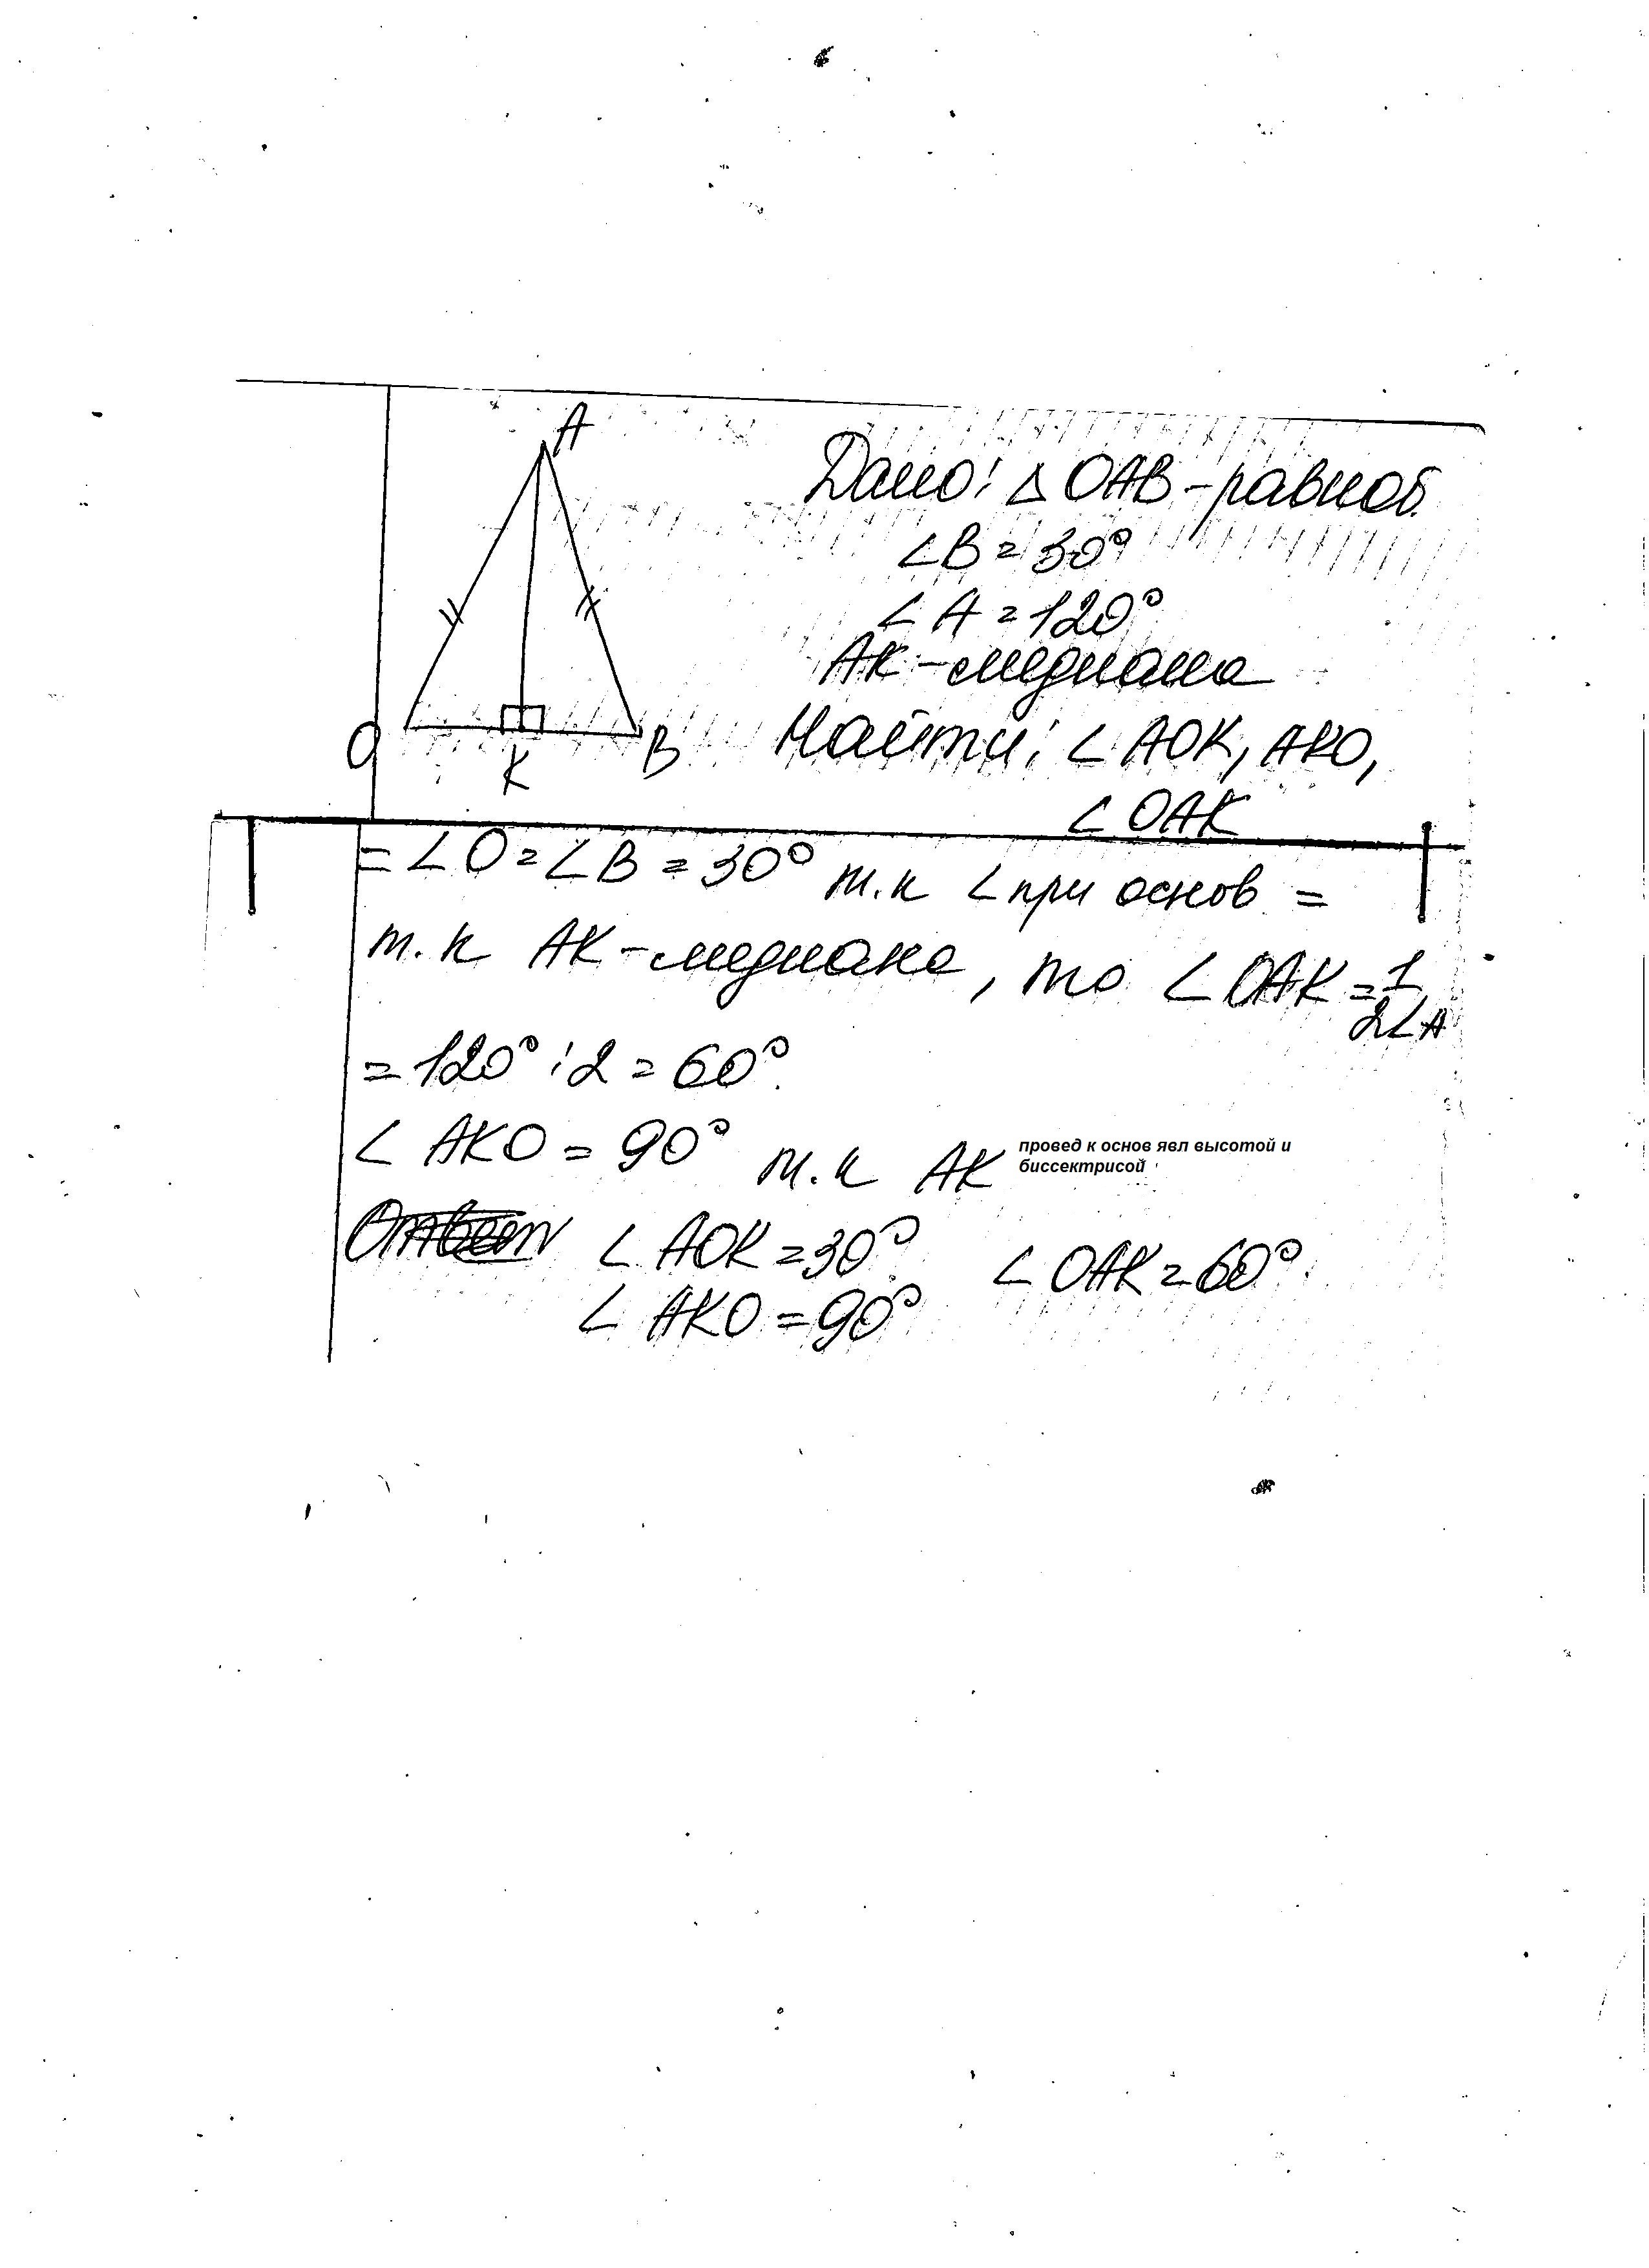 A
O
K
B
Дано: △ OAB - равноб.
∠B = 30°
∠A = 120°
AK - медиана
Найти: ∠AOK, AKO,
∠OAK
= ∠O = ∠B = 30° т.к ∠при основ =
т.к AK - медиана, то ∠OAK = 1
2∠A
= 120° : 2 = 60°.
∠AKO = 90° т.к AK провед к основ явл высотой и
биссектрисой
Ответ ∠AOK = 30° ∠OAK = 60°
∠AKO = 90°